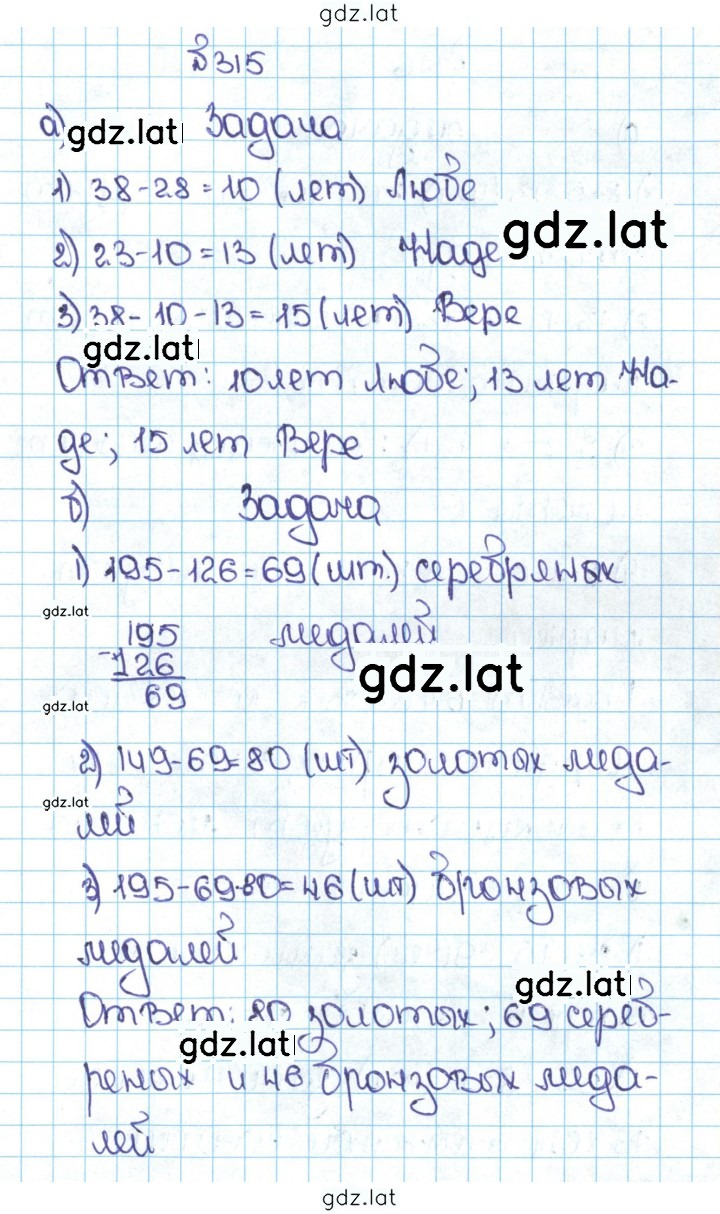 gdz.lat
№315
а) gdz.lat Задача
1) 38-28=10 (лет) Любе
2) 23-10=13 (лет) Наде gdz.lat
3) 38-10-13=15 (лет) Вере
gdz.lat
Ответ: 10 лет Любе; 13 лет На-
де; 15 лет Вере
б) Задача
1) 195-126=69 (шт.) серебряных
gdz.lat
195 медалей
-126 gdz.lat
69
gdz.lat
2) 149-69=80 (шт) золотых меда-
gdz.lat
лей
3) 195-69-80=46 (шт) бронзовых
медалей gdz.lat
Ответ: 80 золотых; 69 сереб-
gdz.lat
реных и 46 бронзовых меда-
лей
gdz.lat